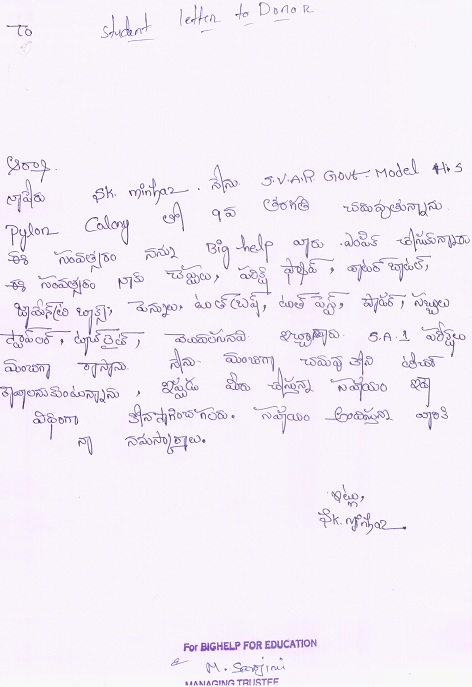 To
Student letter to Donor
నా పేరు SK. minhaz. నేను S.V.A.R Govt. Model H.S
Pylon Colony లో 9వ తరగతి చదువుతున్నాను.
ఈ సంవత్సరం నన్ను Big help వారు ఎంపిక చేసుకున్నారు
ఈ సంవత్సరం నాకు చెప్పులు, పరీక్ష ప్యాడ్, వాటర్ బాటిల్,
బాక్స్, పెన్నులు, టూత్ బ్రష్, టూత్ పేస్ట్, సబ్బులు
ఇచ్చారు. S.A.1 పరీక్షలు
మంచిగా రాసాను. నేను మంచిగా చదువుకొని టీచర్
కావాలనుకుంటున్నాను, ఇప్పుడు మీరు చేస్తున్న సహాయం ఇదే
విధంగా కొనసాగించగలరు. సహాయం అందిస్తున్న వారికి
నా నమస్కారాలు.
ఇట్లు,
SK. minhaz.
For BIGHELP FOR EDUCATION
M. Sarojini
MANAGING TRUSTEE